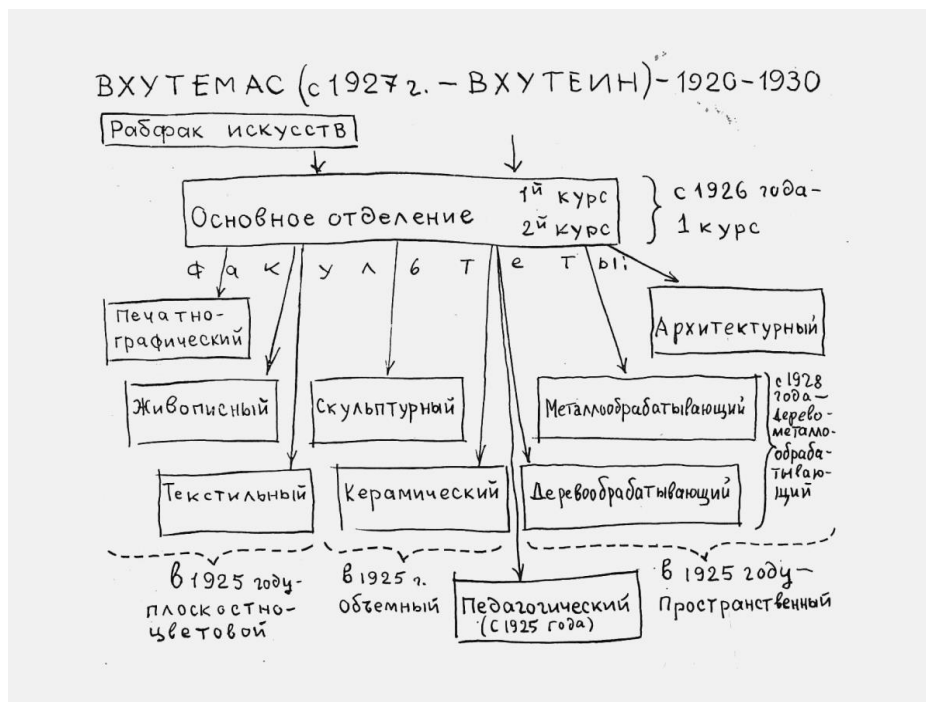 ВХУТЕМАС (с 1927 г. – ВХУТЕИН) – 1920-1930
Рабфак искусств
Основное отделение
1й курс
2й курс
с 1926 года-
1 курс
Факультеты:
Печатно-
графический
Архитектурный
Живописный
Скульптурный
Металлообрабатывающий
с 1928
года-
дерево-
металло-
обраба-
тываю-
щий
Текстильный
Керамический
Деревообрабатывающий
в 1925 году-
плоскостно-
цветовой
в 1925 г.
объемный
Педагогический
(С 1925 года)
в 1925 году –
Пространственный